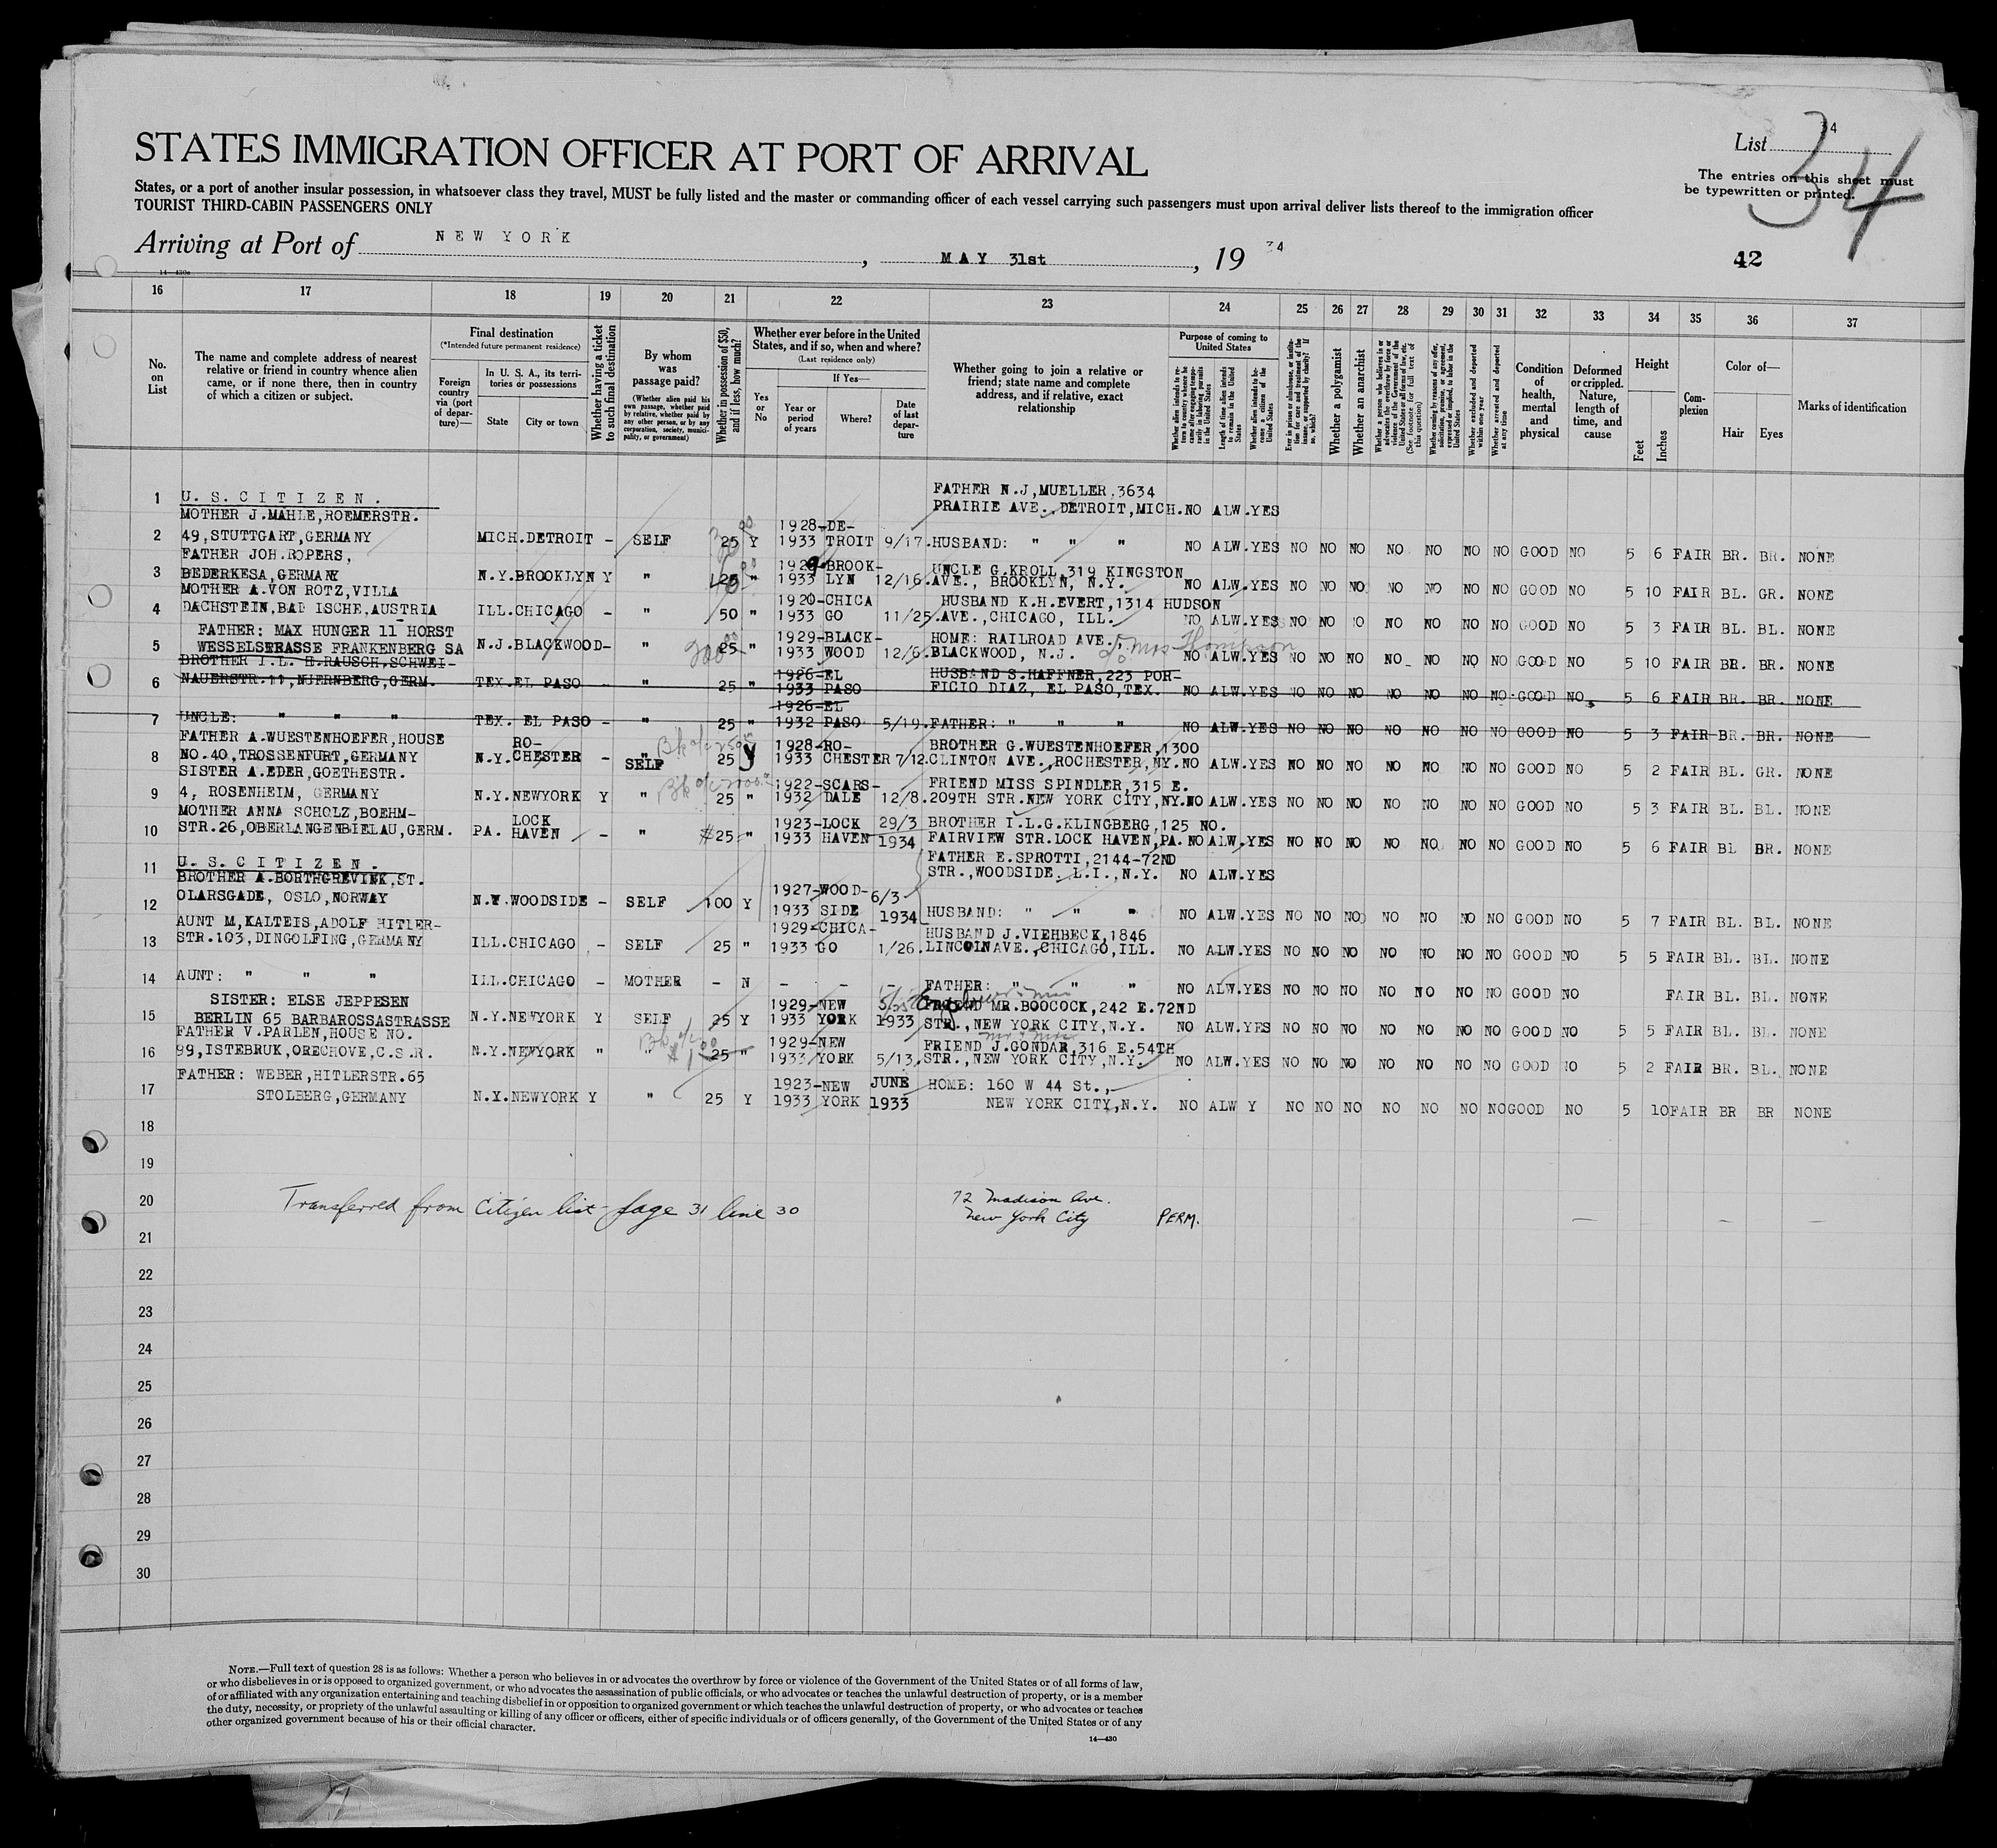 STATES IMMIGRATION OFFICER AT PORT OF ARRIVAL
List 34
34
The entries on this sheet must
be typewritten or printed.
States, or a port of another insular possession, in whatsoever class they travel, MUST be fully listed and the master or commanding officer of each vessel carrying such passengers must upon arrival deliver lists thereof to the immigration officer
TOURIST THIRD-CABIN PASSENGERS ONLY
Arriving at Port of NEW YORK, MAY 31st, 19 34
42
14—430a
16 17 18 19 20 21 22 23 24 25 26 27 28 29 30 31 32 33 34 35 36 37
No. on List
The name and complete address of nearest relative or friend in country whence alien came, or if none there, then in country of which a citizen or subject.
Final destination
(*Intended future permanent residence)
Foreign country via (port of departure)—
In U. S. A., its territories or possessions
State
City or town
Whether having a ticket to such final destination
By whom was passage paid?
(Whether alien paid his own passage, whether paid by relative, whether paid by any other person, or by any corporation, society, municipality, or government)
Whether in possession of $50, and if less, how much?
Whether ever before in the United States, and if so, when and where?
(Last residence only)
Yes or No
If Yes—
Year or period of years
Where?
Date of last departure
Whether going to join a relative or friend; state name and complete address, and if relative, exact relationship
Purpose of coming to United States
Whether alien intends to return to country whence he came after engaging temporarily in laboring pursuits in the United States
Length of time alien intends to remain in the United States
Whether alien intends to become a citizen of the United States
Ever in prison or almshouse, or institution for care and treatment of the insane, or supported by charity? If so, which?
Whether a polygamist
Whether an anarchist
Whether a person who believes in or advocates the overthrow by force or violence of the Government of the United States or all forms of law, etc. (See footnote for full text of this question)
Whether coming by reasons of any offer, solicitation, promise, or agreement, expressed or implied, to labor in the United States
Whether excluded and deported within one year
Whether arrested and deported at any time
Condition of health, mental and physical
Deformed or crippled. Nature, length of time, and cause
Height
Feet
Inches
Complexion
Color of—
Hair
Eyes
Marks of identification
1 U. S. C I T I Z E N . FATHER N.J,MUELLER,3634
PRAIRIE AVE.,DETROIT,MICH. NO ALW.YES
MOTHER J.MAHLE,ROEMERSTR.
2 49,STUTTGART,GERMANY MICH.DETROIT - SELF 25 Y 1928-DE-
1933 TROIT 9/17. HUSBAND: " " " NO ALW.YES NO NO NO NO NO NO NO GOOD NO 5 6 FAIR BR. BR. NONE
FATHER JOH.ROPERS,
3 BEDERKESA,GERMANY N.Y.BROOKLYN Y " 25 " 1929-BROOK-
1933 LYN 12/16. UNCLE G.KROLL,319 KINGSTON
AVE., BROOKLYN, N.Y. NO ALW.YES NO NO NO NO NO NO NO GOOD NO 5 10 FAIR BL. GR. NONE
MOTHER A.VON ROTZ,VILLA
4 DACHSTEIN,BAD ISCHE,AUSTRIA ILL.CHICAGO - " 50 " 1920-CHICA
1933 GO 11/25. HUSBAND K.H.EVERT,1314 HUDSON
AVE.,CHICAGO, ILL. NO ALW.YES NO NO NO NO NO NO NO GOOD NO 5 3 FAIR BL. BL. NONE
FATHER: MAX HUNGER 11 HORST
5 WESSELSTRASSE FRANKENBERG SA N.J.BLACKWOOD- " 200 25 " 1929-BLACK-
1933 WOOD 12/6. HOME: RAILROAD AVE.
BLACKWOOD, N.J. c/o Mrs Thompson NO ALW.YES NO NO NO NO NO NO NO GOOD NO 5 10 FAIR BR. BR. NONE
BROTHER I.L. H.RAUSCH,SCHWEI-
6 NAUERSTR.11,NUERNBERG,GERM. TEX.EL PASO - " 25 " 1926-EL
1933 PASO HUSBAND S.HAFFNER,223 POR-
FICIO DIAZ, EL PASO,TEX. NO ALW.YES NO NO NO NO NO NO NO GOOD NO 5 6 FAIR BR. BR. NONE
7 UNCLE: " " " TEX. EL PASO - " 25 " 1926-EL
1932 PASO 5/19. FATHER: " " " NO ALW.YES NO NO NO NO NO NO NO GOOD NO 5 3 FAIR BR. BR. NONE
FATHER A.WUESTENHOEFER,HOUSE
8 NO.40,TROSSENFURT,GERMANY N.Y. RO-
CHESTER - " SELF 25 Y 1928-RO-
1933 CHESTER 7/12. BROTHER G.WUESTENHOEFER,1300
CLINTON AVE.,ROCHESTER,NY. NO ALW.YES NO NO NO NO NO NO NO GOOD NO 5 2 FAIR BL. GR. NONE
SISTER A.EDER,GOETHESTR.
9 4, ROSENHEIM, GERMANY N.Y.NEWYORK Y " 25 " 1922-SCARS-
1932 DALE 12/8. FRIEND MISS SPINDLER,315 E.
209TH STR.NEW YORK CITY,NY. NO ALW.YES NO NO NO NO NO NO NO GOOD NO 5 3 FAIR BL. BL. NONE
MOTHER ANNA SCHOLZ,BOEHM-
10 STR.26,OBERLANGENBIELAU,GERM. PA. LOCK
HAVEN - " $25 " 1923-LOCK 29/3
1933 HAVEN 1934 BROTHER I.L.G.KLINGBERG,125 NO.
FAIRVIEW STR.LOCK HAVEN,PA. NO ALW.YES NO NO NO NO NO NO NO GOOD NO 5 6 FAIR BL BR. NONE
11 U. S. C I T I Z E N . FATHER E.SPROTTI,2144-72ND
STR.,WOODSIDE. L.I.,N.Y. NO ALW.YES
BROTHER A.BORTHGREVINK,ST.
12 OLARSGADE, OSLO,NORWAY N.Y.WOODSIDE - SELF 100 Y 1927-WOOD- 6/3
1933 SIDE 1934 HUSBAND: " " " NO ALW.YES NO NO NO NO NO NO NO GOOD NO 5 7 FAIR BL. BL. NONE
AUNT M,KALTEIS,ADOLF HITLER-
13 STR.103,DINGOLFING,GERMANY ILL.CHICAGO - SELF 25 " 1929-CHICA-
1933 GO 1/26. HUSBAND J.VIEHBECK,1846
LINCOLNAVE.,CHICAGO,ILL. NO ALW.YES NO NO NO NO NO NO NO GOOD NO 5 5 FAIR BL. BL. NONE
14 AUNT: " " " ILL.CHICAGO - MOTHER - N - - - FATHER: " " " NO ALW.YES NO NO NO NO NO NO NO GOOD NO FAIR BL. BL. NONE
SISTER: ELSE JEPPESEN
15 BERLIN 65 BARBAROSSASTRASSE N.Y.NEWYORK Y SELF 25 Y 1929-NEW
1933 YORK 1933 FRIEND MR.BOOCOCK,242 E.72ND
STR.,NEW YORK CITY,N.Y. NO ALW.YES NO NO NO NO NO NO NO GOOD NO 5 5 FAIR BL. BL. NONE
FATHER V.PARLEN,HOUSE NO.
16 99,ISTEBRUK,ORECHOVE,C.S.R. N.Y.NEWYORK " " 25 " 1929-NEW
1933 YORK 5/13. FRIEND J.GONDAR,316 E.54TH
STR.,NEW YORK CITY,N.Y. NO ALW.YES NO NO NO NO NO NO NO GOOD NO 5 2 FAIR BR. BL. NONE
FATHER: WEBER,HITLERSTR.65
17 STOLBERG,GERMANY N.Y.NEWYORK Y " 25 Y 1923-NEW JUNE
1933 YORK 1933 HOME: 160 W 44 St.,
NEW YORK CITY,N.Y. NO ALW Y NO NO NO NO NO NO NO GOOD NO 5 10 FAIR BR BR NONE
18
19
20 Transferred from Citizen list - page 31 line 30 72 Madison Ave.
New York City PERM. — — — —
21
22
23
24
25
26
27
28
29
30
NOTE.—Full text of question 28 is as follows: Whether a person who believes in or advocates the overthrow by force or violence of the Government of the United States or of all forms of law,
or who disbelieves in or is opposed to organized government, or who advocates the assassination of public officials, or who advocates or teaches the unlawful destruction of property, or is a member
of or affiliated with any organization entertaining and teaching disbelief in or opposition to organized government or which teaches the unlawful destruction of property, or who advocates or teaches
the duty, necessity, or propriety of the unlawful assaulting or killing of any officer or officers, either of specific individuals or of officers generally, of the Government of the United States or of any
other organized government because of his or their official character.
14—430